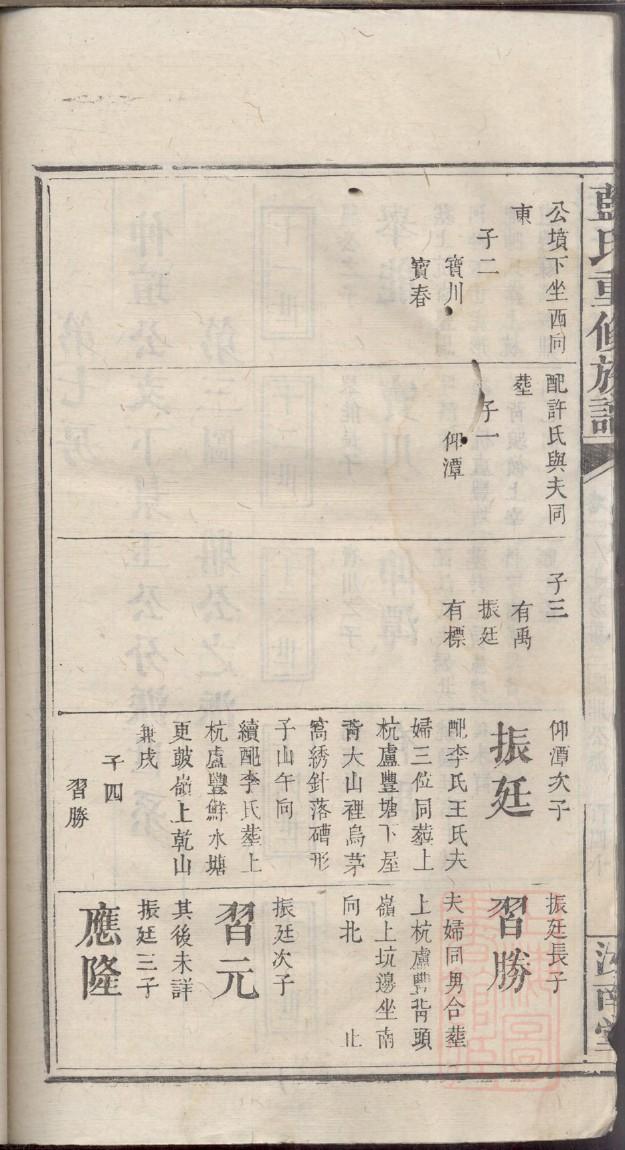 藍氏重修族譜
汝南堂
公墳下坐西向
東
子二
寶川
寶春
配許氏與夫同
塟
子一
仰潭
子三
有禹
振廷
有標
仰潭次子
振廷
配李氏王氏夫
婦三位同塟上
杭盧豐塘下屋
背大山裡烏茅
窩綉針落磚形
子山午向
續配李氏塟上
杭盧豐鮮水塘
更鼓嶺上乾山
兼戌
子四
習勝
振廷長子
習勝
夫婦同男合塟
上杭盧豐背頭
嶺上坑邊坐南
向北
止
振廷次子
習元
其後未詳
振廷三子
應隆